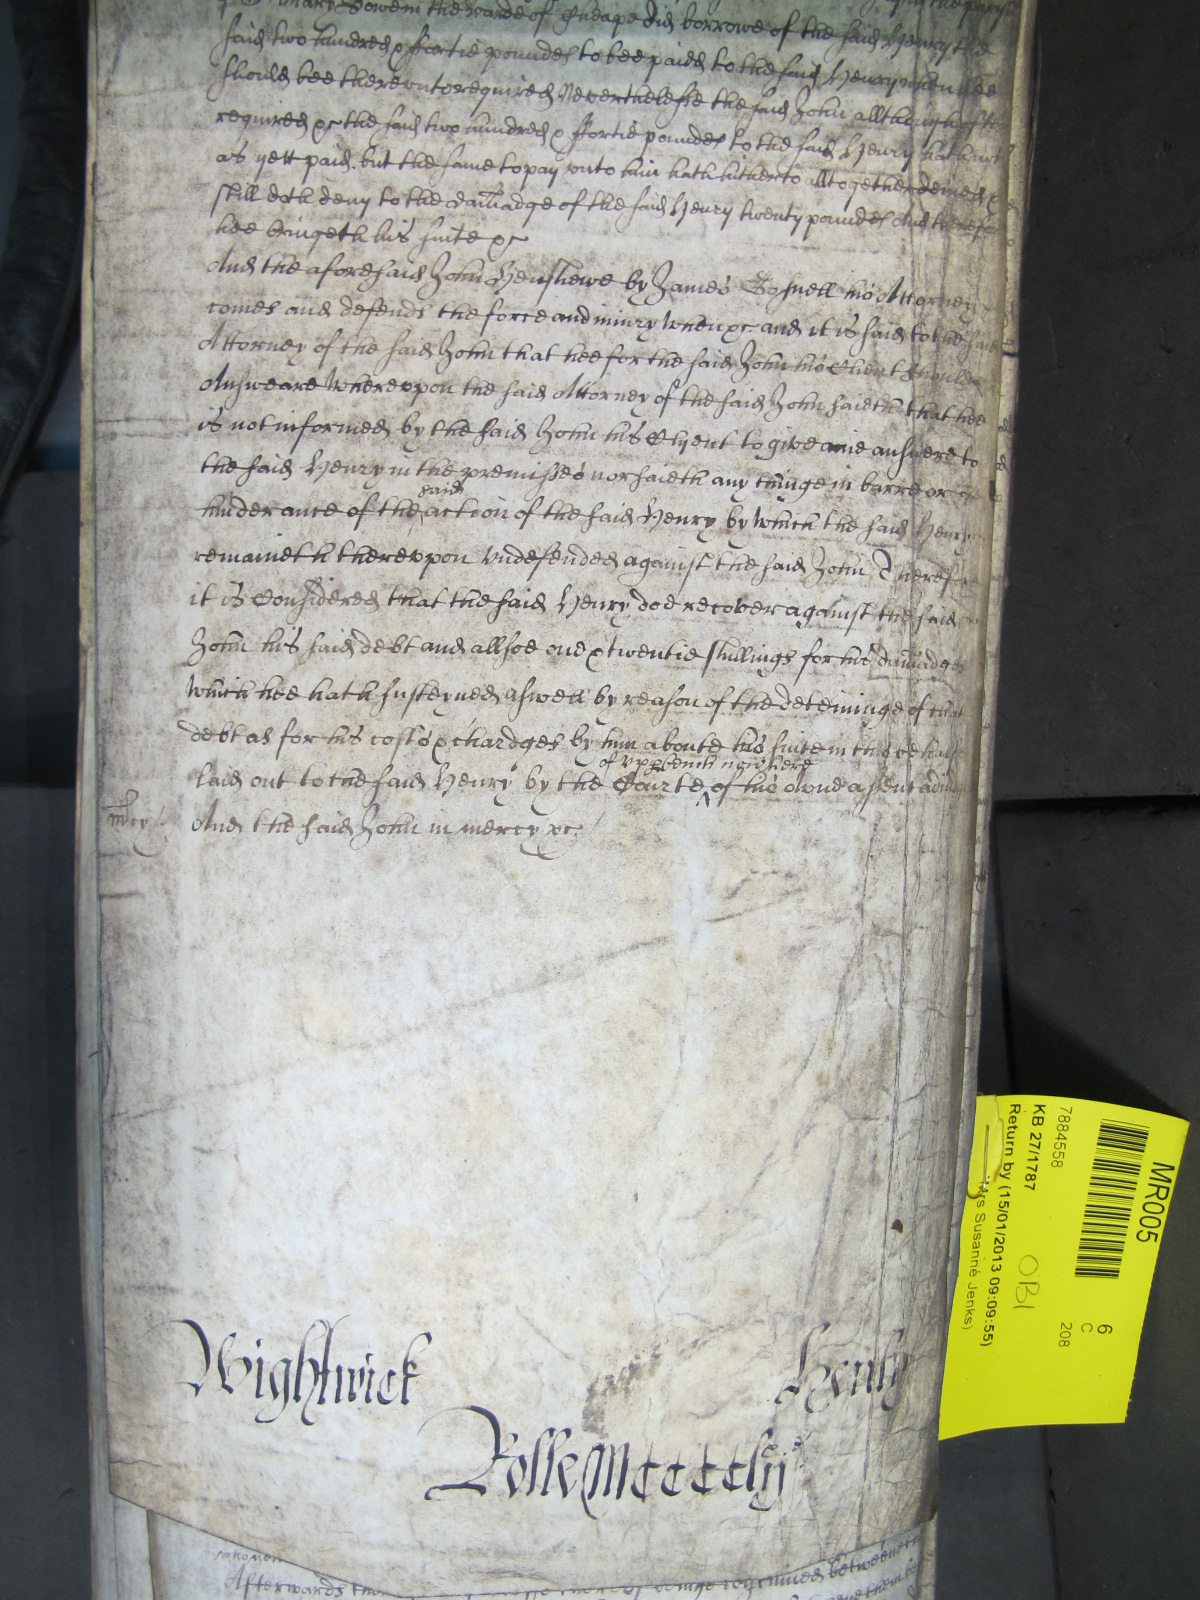 Mary Bowe in the warde of Cheape did borrowe of the said Henry the
said two hundred & Fortie poundes to bee paid to the said Henry when hee
should bee thereunto required Neverthelesse the said John allthough ofte
required &c the said two hundred & Fortie poundes to the said Henry hath not
as yett paid but the same to pay unto him hath hitherto alltogether denied &
still doth deny to the damadge of the said Henry twenty poundes And therefore
hee bringeth his suite &c
And the aforesaid John Henshewe by James Gosnell his Attorney
comes and defends the force and iniury when &c and it is said to the said
Attorney of the said John that hee for the said John his Client should
Answeare Whereupon the said Attorney of the said John saieth that hee
is not informed by the said John his Clyent to give anie answere to
the said Henry in the premisses nor saieth any thinge in barre or
hinderance of the said action of the said Henry by which the said Henry
remaineth thereupon Undefended against the said John Therefore
it is Considered that the said Henry doe recover against the said
John his said debt and allsoe one & twentie shillings for his damadges
which hee hath susteyned aswell by reason of the deteininge of that
debt as for his costs & chardges by him aboute his suite in this behalfe
laid out to the said Henry by the Courte of Upper bench now here of his owne assent adiud
mercy And the said John in mercy &c
Wightwick Henly
Rolle MCCCCliij
Afterwards
MR005
7884558
KB 27/1787
Return by (15/01/2013 09:09:55)
Mrs Susanne Jenks)
OB1
6
C
208